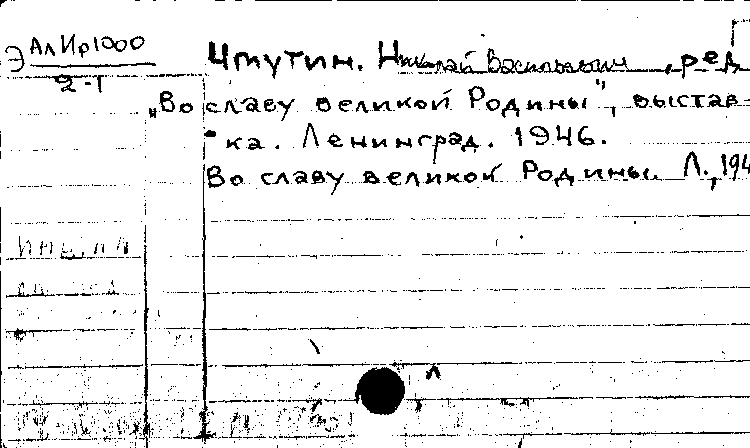 Э АлИр1000
2-1
Чтутин. Николай Васильевич, ред.
„Во славу великой Родины", выстав-
ка. Ленинград. 1946.
Во славу великой Родины. Л., 194